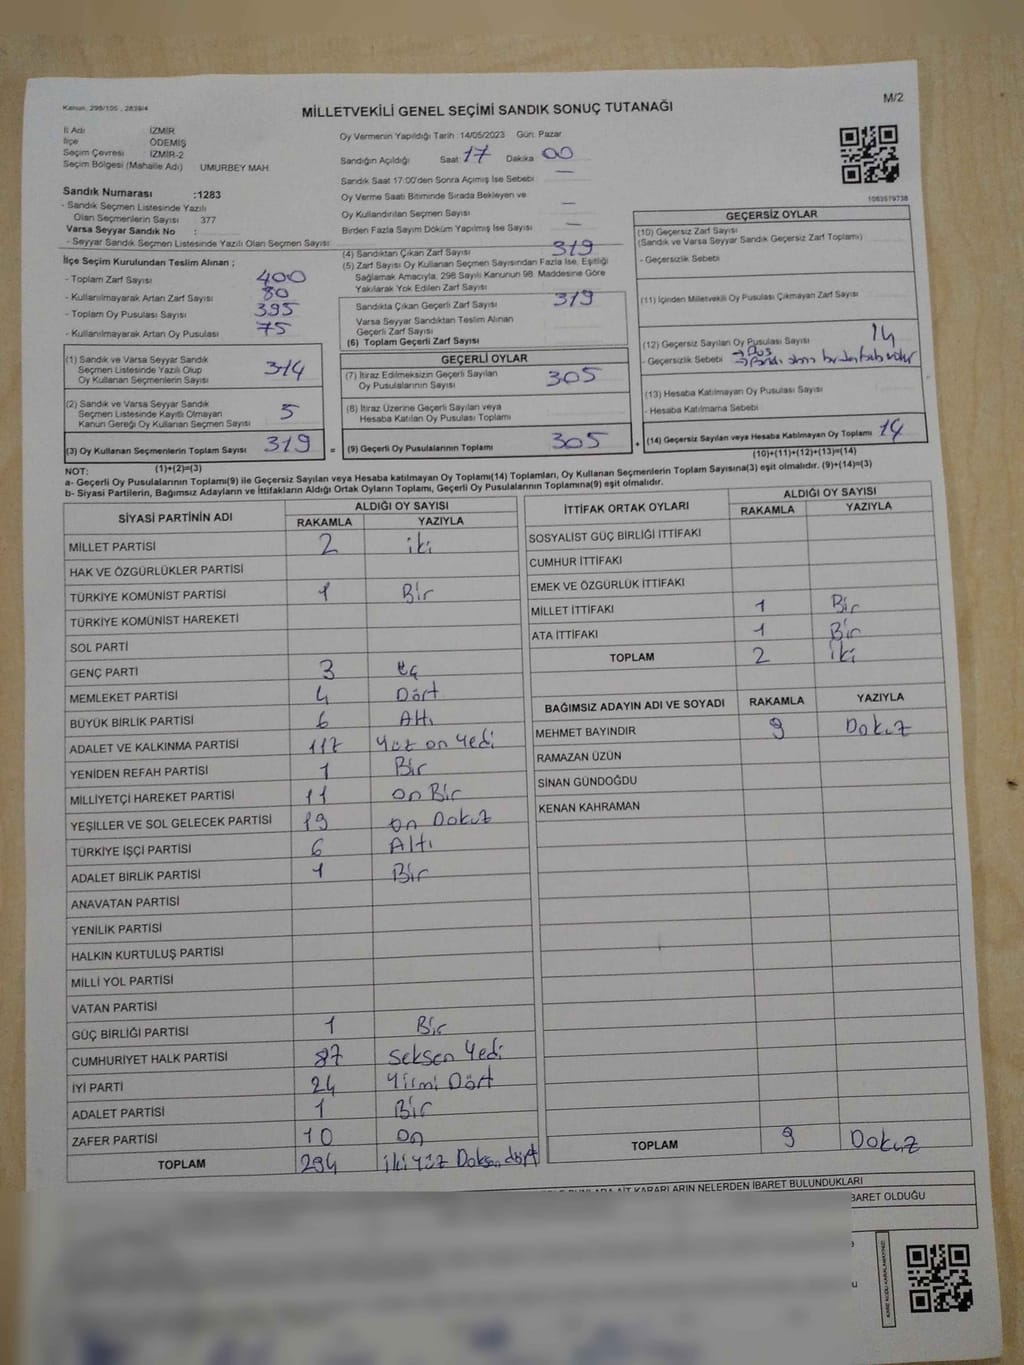 Kanun, 298/105 , 2839/4
M/2
MİLLETVEKİLİ GENEL SEÇİMİ SANDIK SONUÇ TUTANAĞI
İl Adı İZMİR
İlçe ÖDEMİŞ
Seçim Çevresi İZMİR-2
Seçim Bölgesi (Mahalle Adı) UMURBEY MAH.
Sandık Numarası :1283
- Sandık Seçmen Listesinde Yazılı
Olan Seçmenlerin Sayısı 377
Varsa Seyyar Sandık No :
- Seyyar Sandık Seçmen Listesinde Yazılı Olan Seçmen Sayısı:
İlçe Seçim Kurulundan Teslim Alınan ;
- Toplam Zarf Sayısı 400
- Kullanılmayarak Artan Zarf Sayısı 80
- Toplam Oy Pusulası Sayısı 395
- Kullanılmayarak Artan Oy Pusulası 75
(1) Sandık ve Varsa Seyyar Sandık
Seçmen Listesinde Yazılı Olup
Oy Kullanan Seçmenlerin Sayısı 314
(2) Sandık ve Varsa Seyyar Sandık
Seçmen Listesinde Kayıtlı Olmayan
Kanun Gereği Oy Kullanan Seçmen Sayısı 5
(3) Oy Kullanan Seçmenlerin Toplam Sayısı 319 =
Oy Vermenin Yapıldığı Tarih :14/05/2023 Gün: Pazar
Sandığın Açıldığı Saat 17 Dakika 00
Sandık Saat 17:00'den Sonra Açımış İse Sebebi —
Oy Verme Saati Bitiminde Sırada Bekleyen ve
Oy Kullandırılan Seçmen Sayısı —
Birden Fazla Sayım Döküm Yapılmış İse Sayısı —
(4) Sandıktan Çıkan Zarf Sayısı 319
(5) Zarf Sayısı Oy Kullanan Seçmen Sayısından Fazla İse, Eşitliği
Sağlamak Amacıyla, 298 Sayılı Kanunun 98. Maddesine Göre
Yakılarak Yok Edilen Zarf Sayısı
Sandıkta Çıkan Geçerli Zarf Sayısı 319
Varsa Seyyar Sandıktan Teslim Alınan
Geçerli Zarf Sayısı
(6) Toplam Geçerli Zarf Sayısı
GEÇERLİ OYLAR
(7) İtiraz Edilmeksizin Geçerli Sayılan
Oy Pusulalarının Sayısı 305
(8) İtiraz Üzerine Geçerli Sayılan veya
Hesaba Katılan Oy Pusulası Toplamı
(9) Geçerli Oy Pusulalarının Toplamı 305 +
1083579738
GEÇERSİZ OYLAR
(10) Geçersiz Zarf Sayısı
(Sandık ve Varsa Seyyar Sandık Geçersiz Zarf Toplamı)
- Geçersizlik Sebebi
(11) İçinden Milletvekili Oy Pusulası Çıkmayan Zarf Sayısı
(12) Geçersiz Sayılan Oy Pusulası Sayısı 14
- Geçersizlik Sebebi
(13) Hesaba Katılmayan Oy Pusulası Sayısı
- Hesaba Katılmama Sebebi
(14) Geçersiz Sayılan veya Hesaba Katılmayan Oy Toplamı 14
(10)+(11)+(12)+(13)=(14)
NOT: (1)+(2)=(3)
a- Geçerli Oy Pusulalarının Toplamı(9) ile Geçersiz Sayılan veya Hesaba katılmayan Oy Toplamı(14) Toplamları, Oy Kullanan Seçmenlerin Toplam Sayısına(3) eşit olmalıdır. (9)+(14)=(3)
b- Siyasi Partilerin, Bağımsız Adayların ve İttifakların Aldığı Ortak Oyların Toplamı, Geçerli Oy Pusulalarının Toplamına(9) eşit olmalıdır.
SİYASİ PARTİNİN ADI ALDIĞI OY SAYISI
RAKAMLA YAZIYLA
MİLLET PARTİSİ 2 iki
HAK VE ÖZGÜRLÜKLER PARTİSİ
TÜRKİYE KOMÜNİST PARTİSİ 1 Bir
TÜRKİYE KOMÜNİST HAREKETİ
SOL PARTİ
GENÇ PARTİ 3 üç
MEMLEKET PARTİSİ 4 Dört
BÜYÜK BİRLİK PARTİSİ 6 Altı
ADALET VE KALKINMA PARTİSİ 117 Yüz on Yedi
YENİDEN REFAH PARTİSİ 1 Bir
MİLLİYETÇİ HAREKET PARTİSİ 11 on Bir
YEŞİLLER VE SOL GELECEK PARTİSİ 19 on Dokuz
TÜRKİYE İŞÇİ PARTİSİ 6 Altı
ADALET BİRLİK PARTİSİ 1 Bir
ANAVATAN PARTİSİ
YENİLİK PARTİSİ
HALKIN KURTULUŞ PARTİSİ
MİLLİ YOL PARTİSİ
VATAN PARTİSİ
GÜÇ BİRLİĞİ PARTİSİ 1 Bir
CUMHURİYET HALK PARTİSİ 87 Seksen Yedi
İYİ PARTİ 24 Yirmi Dört
ADALET PARTİSİ 1 Bir
ZAFER PARTİSİ 10 On
TOPLAM 294 ikiyüz Doksan dört
İTTİFAK ORTAK OYLARI ALDIĞI OY SAYISI
RAKAMLA YAZIYLA
SOSYALİST GÜÇ BİRLİĞİ İTTİFAKI
CUMHUR İTTİFAKI
EMEK VE ÖZGÜRLÜK İTTİFAKI
MİLLET İTTİFAKI 1 Bir
ATA İTTİFAKI 1 Bir
TOPLAM 2 iki
BAĞIMSIZ ADAYIN ADI VE SOYADI RAKAMLA YAZIYLA
MEHMET BAYINDIR 9 Dokuz
RAMAZAN ÜZÜN
SİNAN GÜNDOĞDU
KENAN KAHRAMAN
TOPLAM 9 Dokuz
KARARLARIN NELERDEN İBARET BULUNDUKLARI
İBARET OLDUĞU